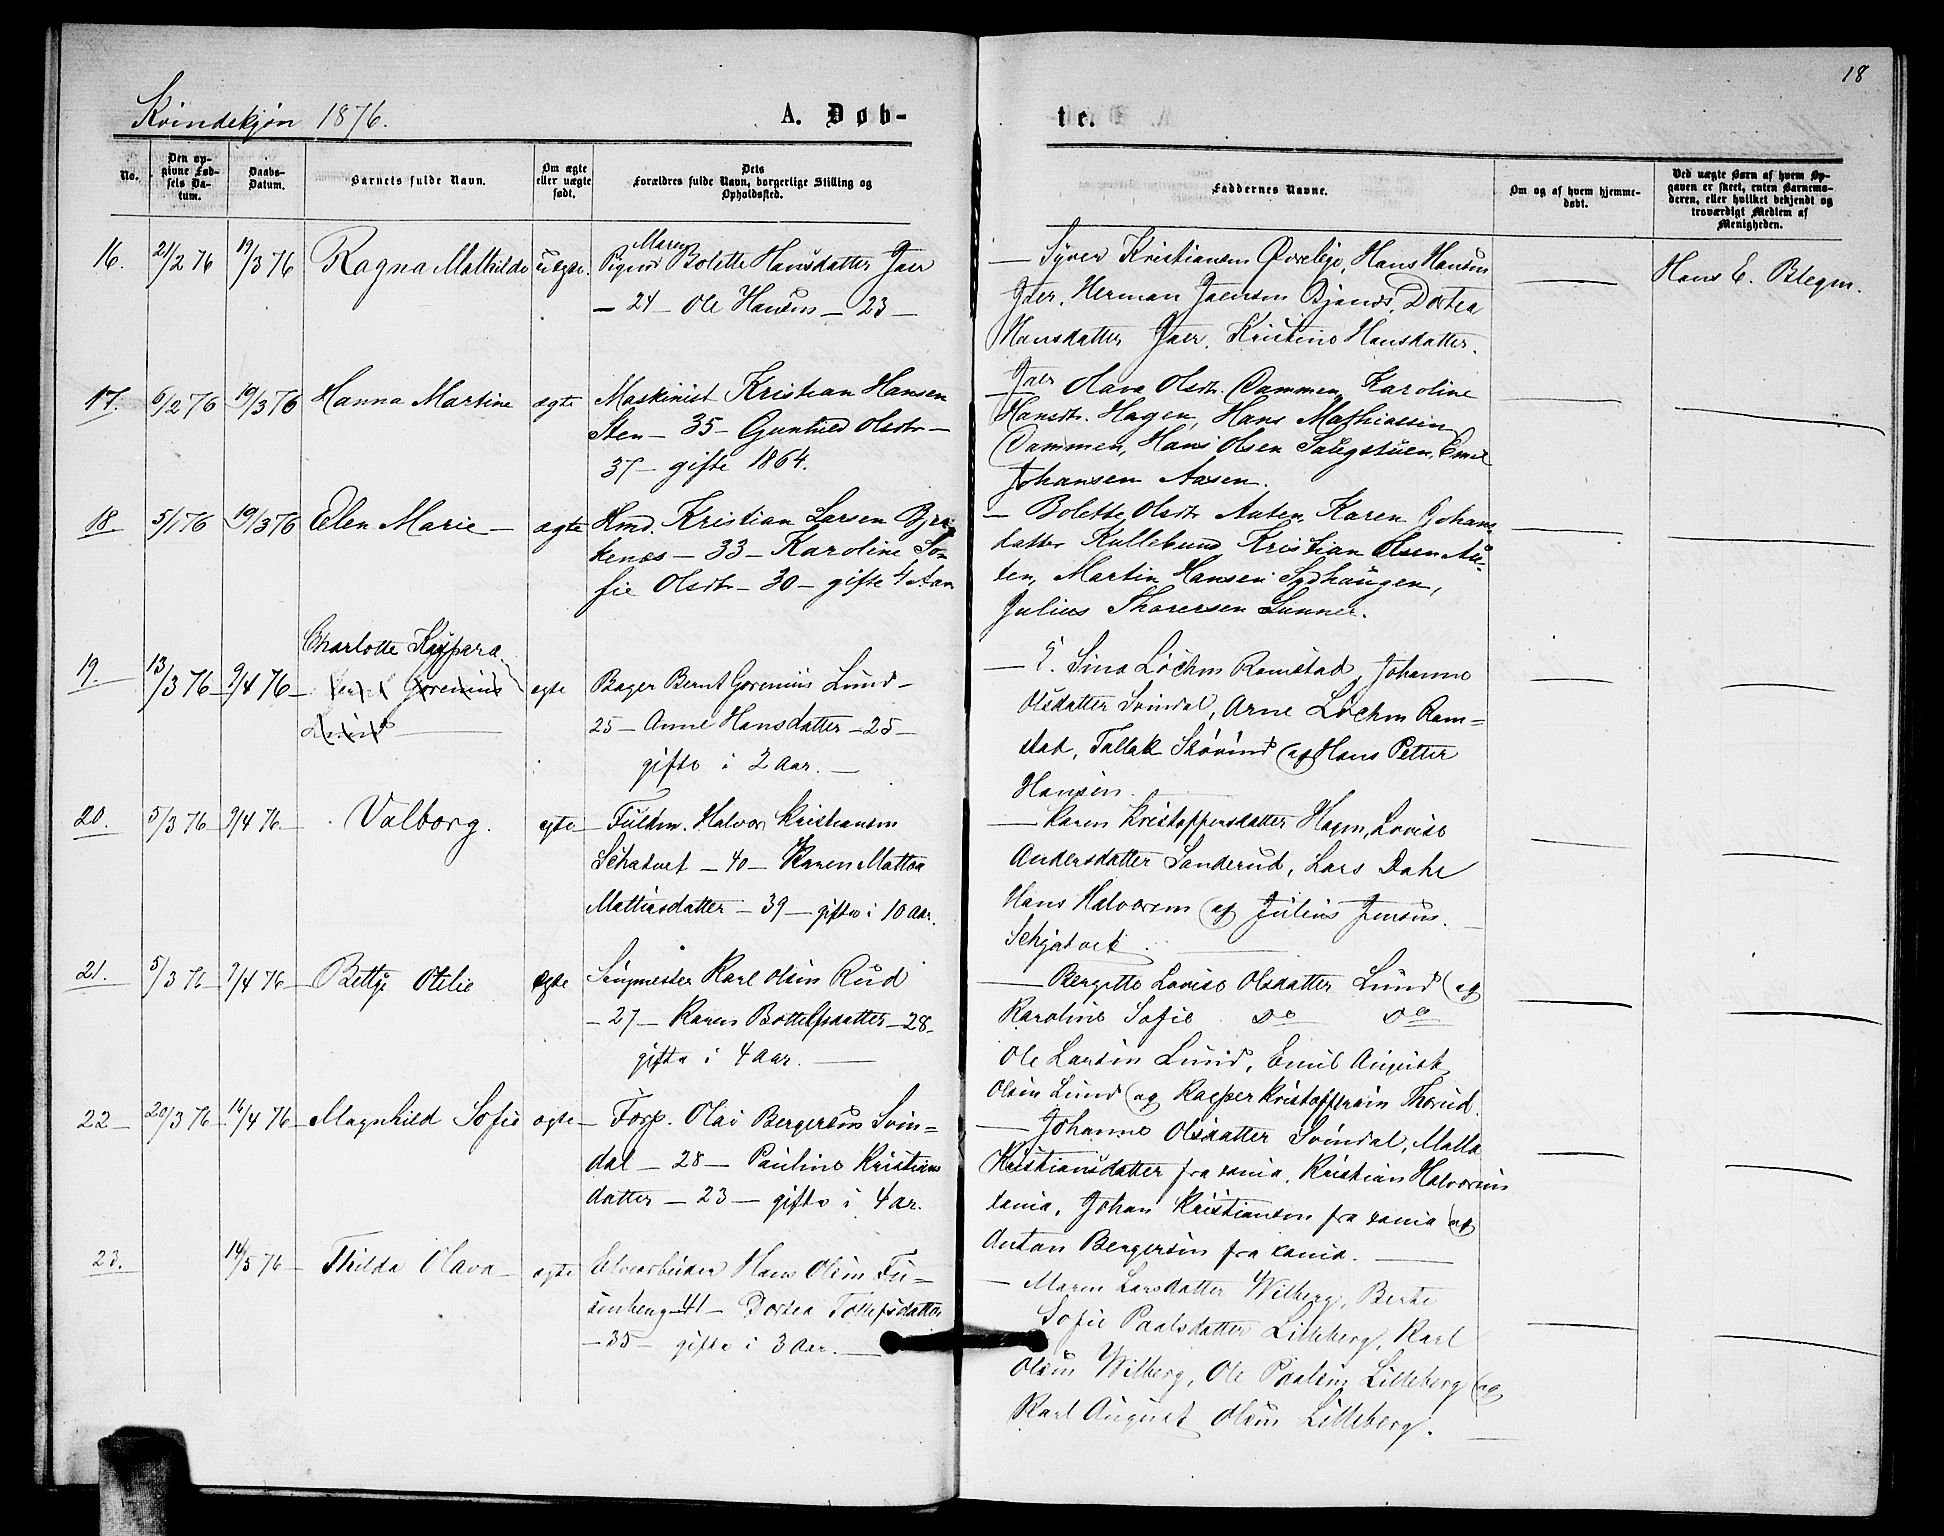 18
Kvindekjøn 1876.
A. Døb-
te.
No.
Den op-
givne Fød-
sels Da-
tum.
Daabs-
Datum.
Barnets fulde Navn.
Om ægte
eller uægte
født.
Dets
Forældres fulde Navn, borgerlige Stilling og
Opholdssted.
Faddernes Navne.
Om og af hvem hjemme-
døbt.
Ved uægte Børn af hvem Op-
gaven er skeet, enten Barnemo-
deren, eller hvilket bekjendt og
troværdigt Medlem af
Menigheden.
16. 21/2 76 19/3 76 Ragna Mathilde uægte.
Maren
Pigen Bolette Hansdatter Jaer
— 24 — Ole Hansen — 23 —
— Syver Kristiansen Hans Hansen
Jaer, Herman Jaensen Dortea
Hansdatter Jaer, Kristine Hansdatter
Jaer
Hans E. Blegen.
17. 6/2 76 19/3 76 Hanna Martine ægte
Maskinist Kristian Hansen
Sten — 35 — Gunhild Olsdtr —
37 — gifte 1864.
— Olava Olsdtr. Dammen, Karoline
Hansdtr. Hagen, Hans Mathiassen
Dammen, Hans Olsen Saugstuen, Emil
Johansen Aasen.
18 5/1 76 19/3 76 Elen Marie — ægte
Hmd. Kristian Larsen Bjer
kenes — 33 — Karoline So-
fie Olsdtr — 30 — gifte 4 Aar
— Bolette Olsdtr Auten, Karen Johans
datter Kullebund, Kristian Olsen Au-
ten, Martin Hansen Sydhaugen,
Julius Thoresen Lunner.
19. 13/3 76 9/4 76 Charlotte Kaspara
Gorenius
Lund
ægte
Bager Bernt Gorenius Lund —
25 — Anne Hansdatter — 25 —
gifte i 2 Aar. —
— E. Sina Lochen Ramstad, Johanne
Olsdatter Svindal, Arne Lochen Ram=
stad, Tallak Skøvind og Hans Petter
Hansen
20. 5/3 76 9/4 76 Valborg. ægte
— Fuldm. Halvor Kristiansen
— 40 — Karen Mattea
Mattiasdatter — 39 — gifte i 10 Aar.
— Karen Kristoffersdatter Hagen, Lovise
Andersdatter Sanderud, Lars Dahl
Hans Halvorsen og Julius Jensen
21. 5/3 76 9/4 76 Bettye Otelie ægte
Sangmester Karl Olsen Rud
— 27 — Karen Bottelfsdatter — 28 —
gifte i 4 Aar. —
— Bergitte Lovise Olsdatter Lund og
Karoline Sofie Do Do
Ole Larsen Lund, Emil August
Olsen Lund og Kasper Kristoffersen Thorud.
22 — 20/3 76 16/4 76 Magnhild Sofie ægte
— Forp. Olai Bergersen Svin=
dal — 28 — Pauline Kristians
datter — 23 — gifte i 4 ar.
— Johanne Olsdatter Svindal, Malla
Kristiansdatter fra xania, Kristian Halvorsen
xania, Johan Kristiansen fra xania og
Anton Bergersen fra xania. —
23. 14/5 76 Thilda Olava — ægte
Elvearbeider Hans Olsen Fu=
senheng — 41 — Dortea Tollefsdatter
— 35 — gifte i 3 Aar. —
— Maren Larsdatter Wilberg, Berte
Sofie Paalsdatter Lilleberg, Karl
Olsen Wilberg, Ole Paalsen Lilleberg og
Karl August Olsen Lilleberg.